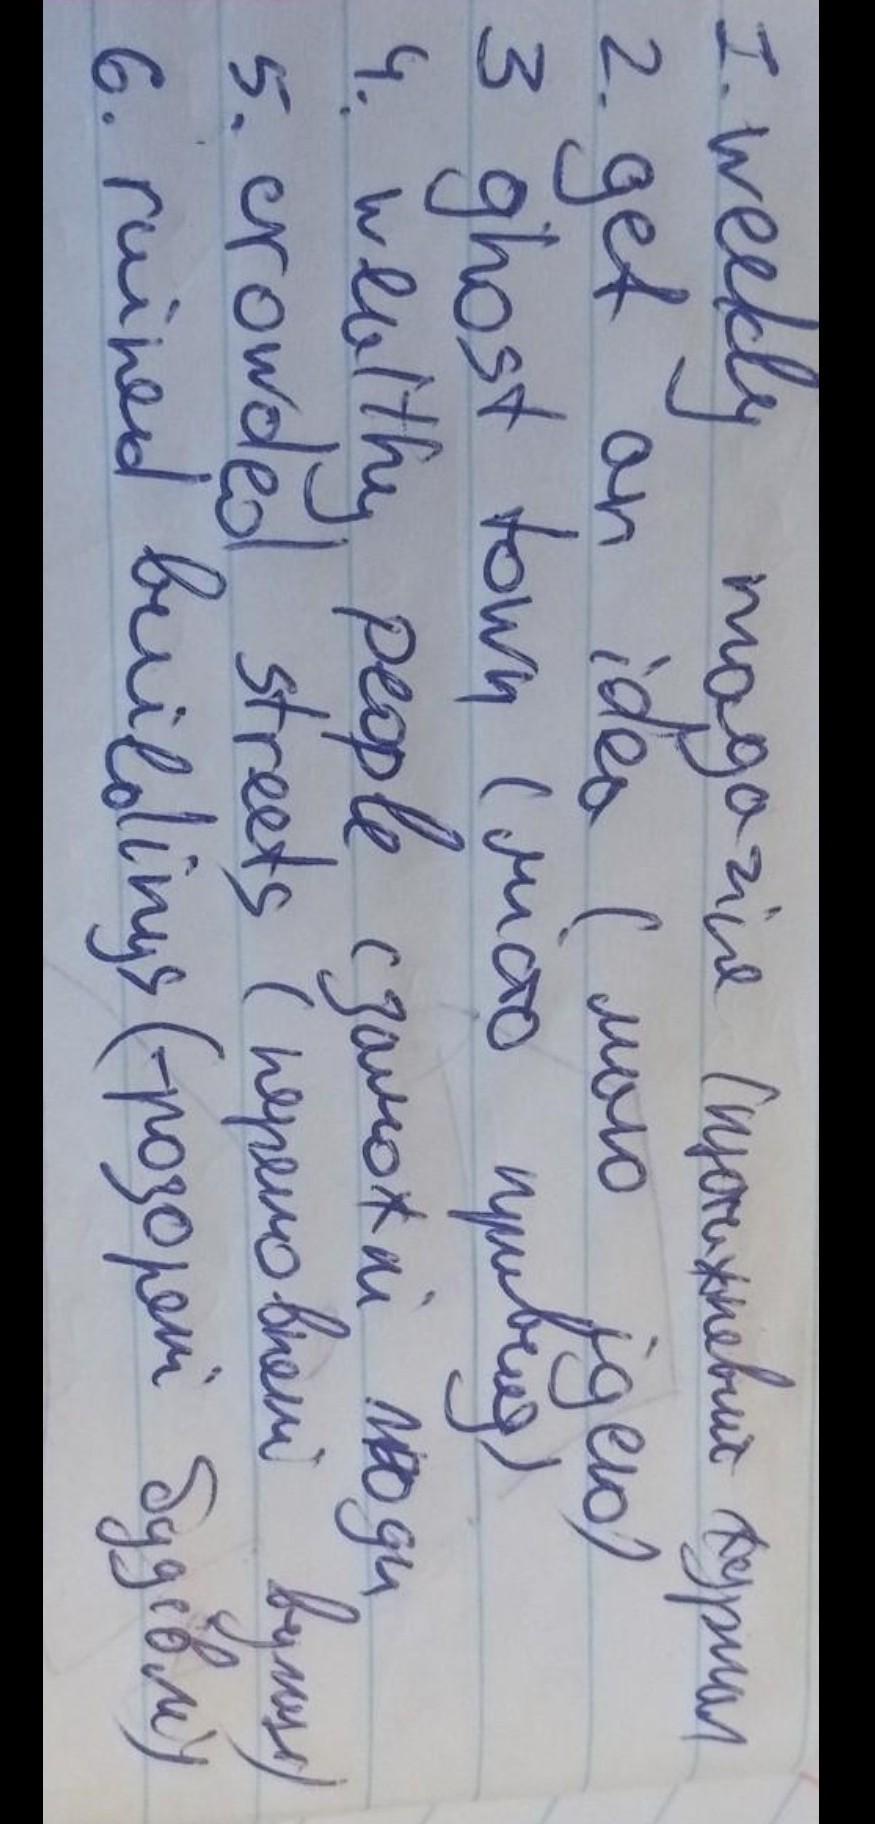 I. weekly magazine (щотижневий журнал
2. get an idea (маю ідею)
3 ghost town (місто привид)
4. wealthy people (заможні люди
5. crowded streets (переповнені вулиці)
6. ruined buildings (розорені будівлі)